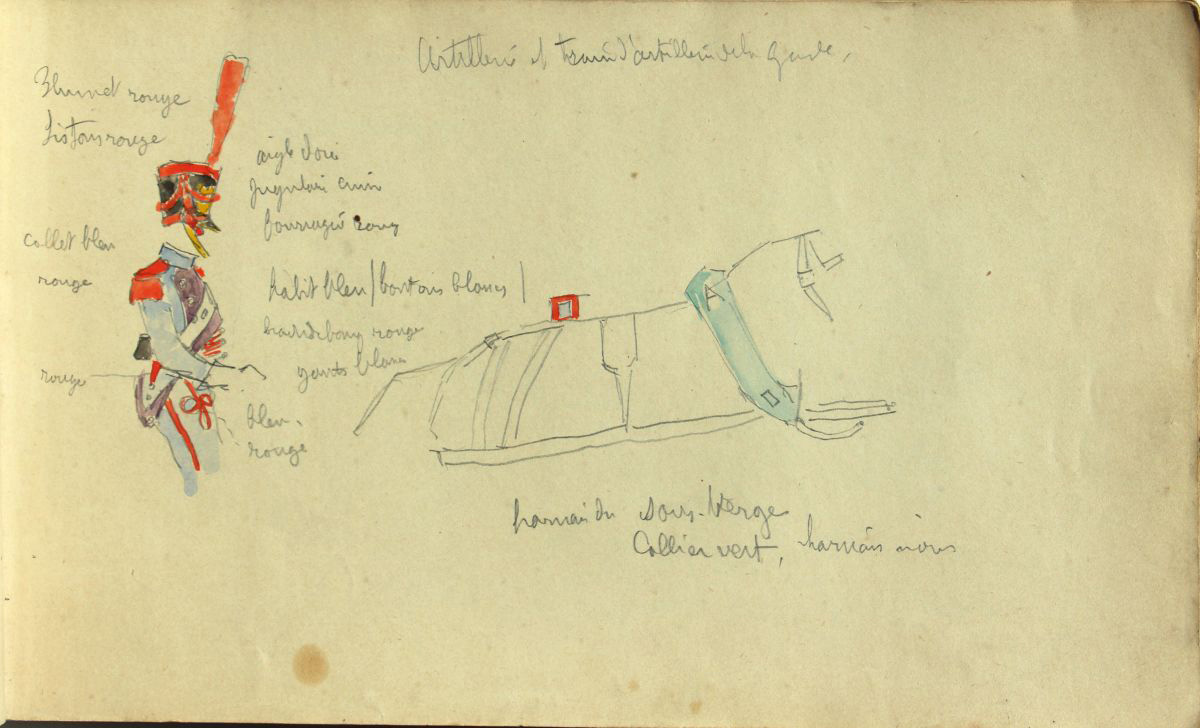 Artillerie et train d'artillerie de la Garde,
Plumet rouge
aigle doré
jugulaire cuir
fourragère rouge
collet bleu
rouge
habit bleu (boutons blancs)
brandebourg rouge
gants blancs
rouge
bleu.
rouge
A
harnais du sous-Verge
Collier vert, harnais noirs